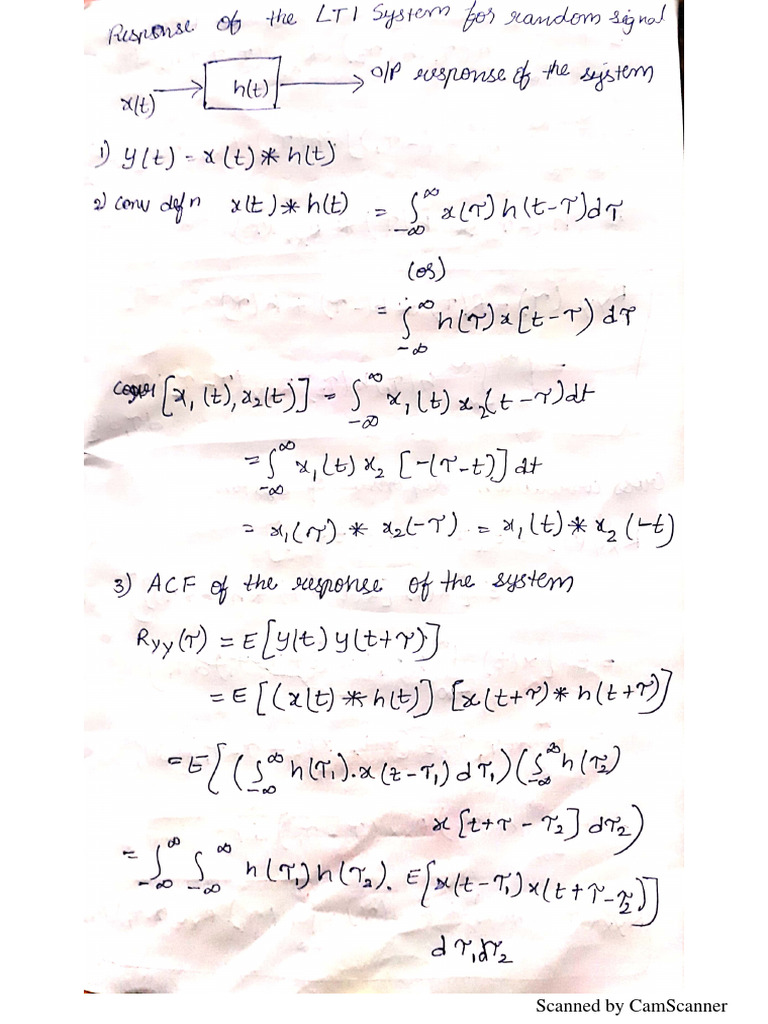 Response of the LTI System for random signal
x(t) h(t) O/P response of the system
1) y(t) = x(t) * h(t)
2) Conv defn x(t) * h(t) = ∫_{-∞}^{∞} x(τ) h(t-τ) dτ
(or)
= ∫_{-∞}^{∞} h(τ) x[t-τ) dτ
[x₁(t), x₂(t)] = ∫_{-∞}^{∞} x₁(t) x₂(t-τ) dt
= ∫_{-∞}^{∞} x₁(t) x₂ [-(τ-t)] dt
= x₁(τ) * x₂(-τ) = x₁(t) * x₂(-t)
3) ACF of the response of the system
Ryy(τ) = E[y(t) y(t+τ)]
= E[(x(t) * h(t)] [x(t+τ) * h(t+τ)]
= E[(∫_{-∞}^{∞} h(τ₁). x(t-τ₁) dτ₁)(∫_{-∞}^{∞} h(τ₂)
x[t+τ-τ₂] dτ₂)
= ∫_{-∞}^{∞} ∫_{-∞}^{∞} h(τ₁) h(τ₂). E[x(t-τ₁) x(t+τ-τ₂)]
dτ₁dτ₂
Scanned by CamScanner